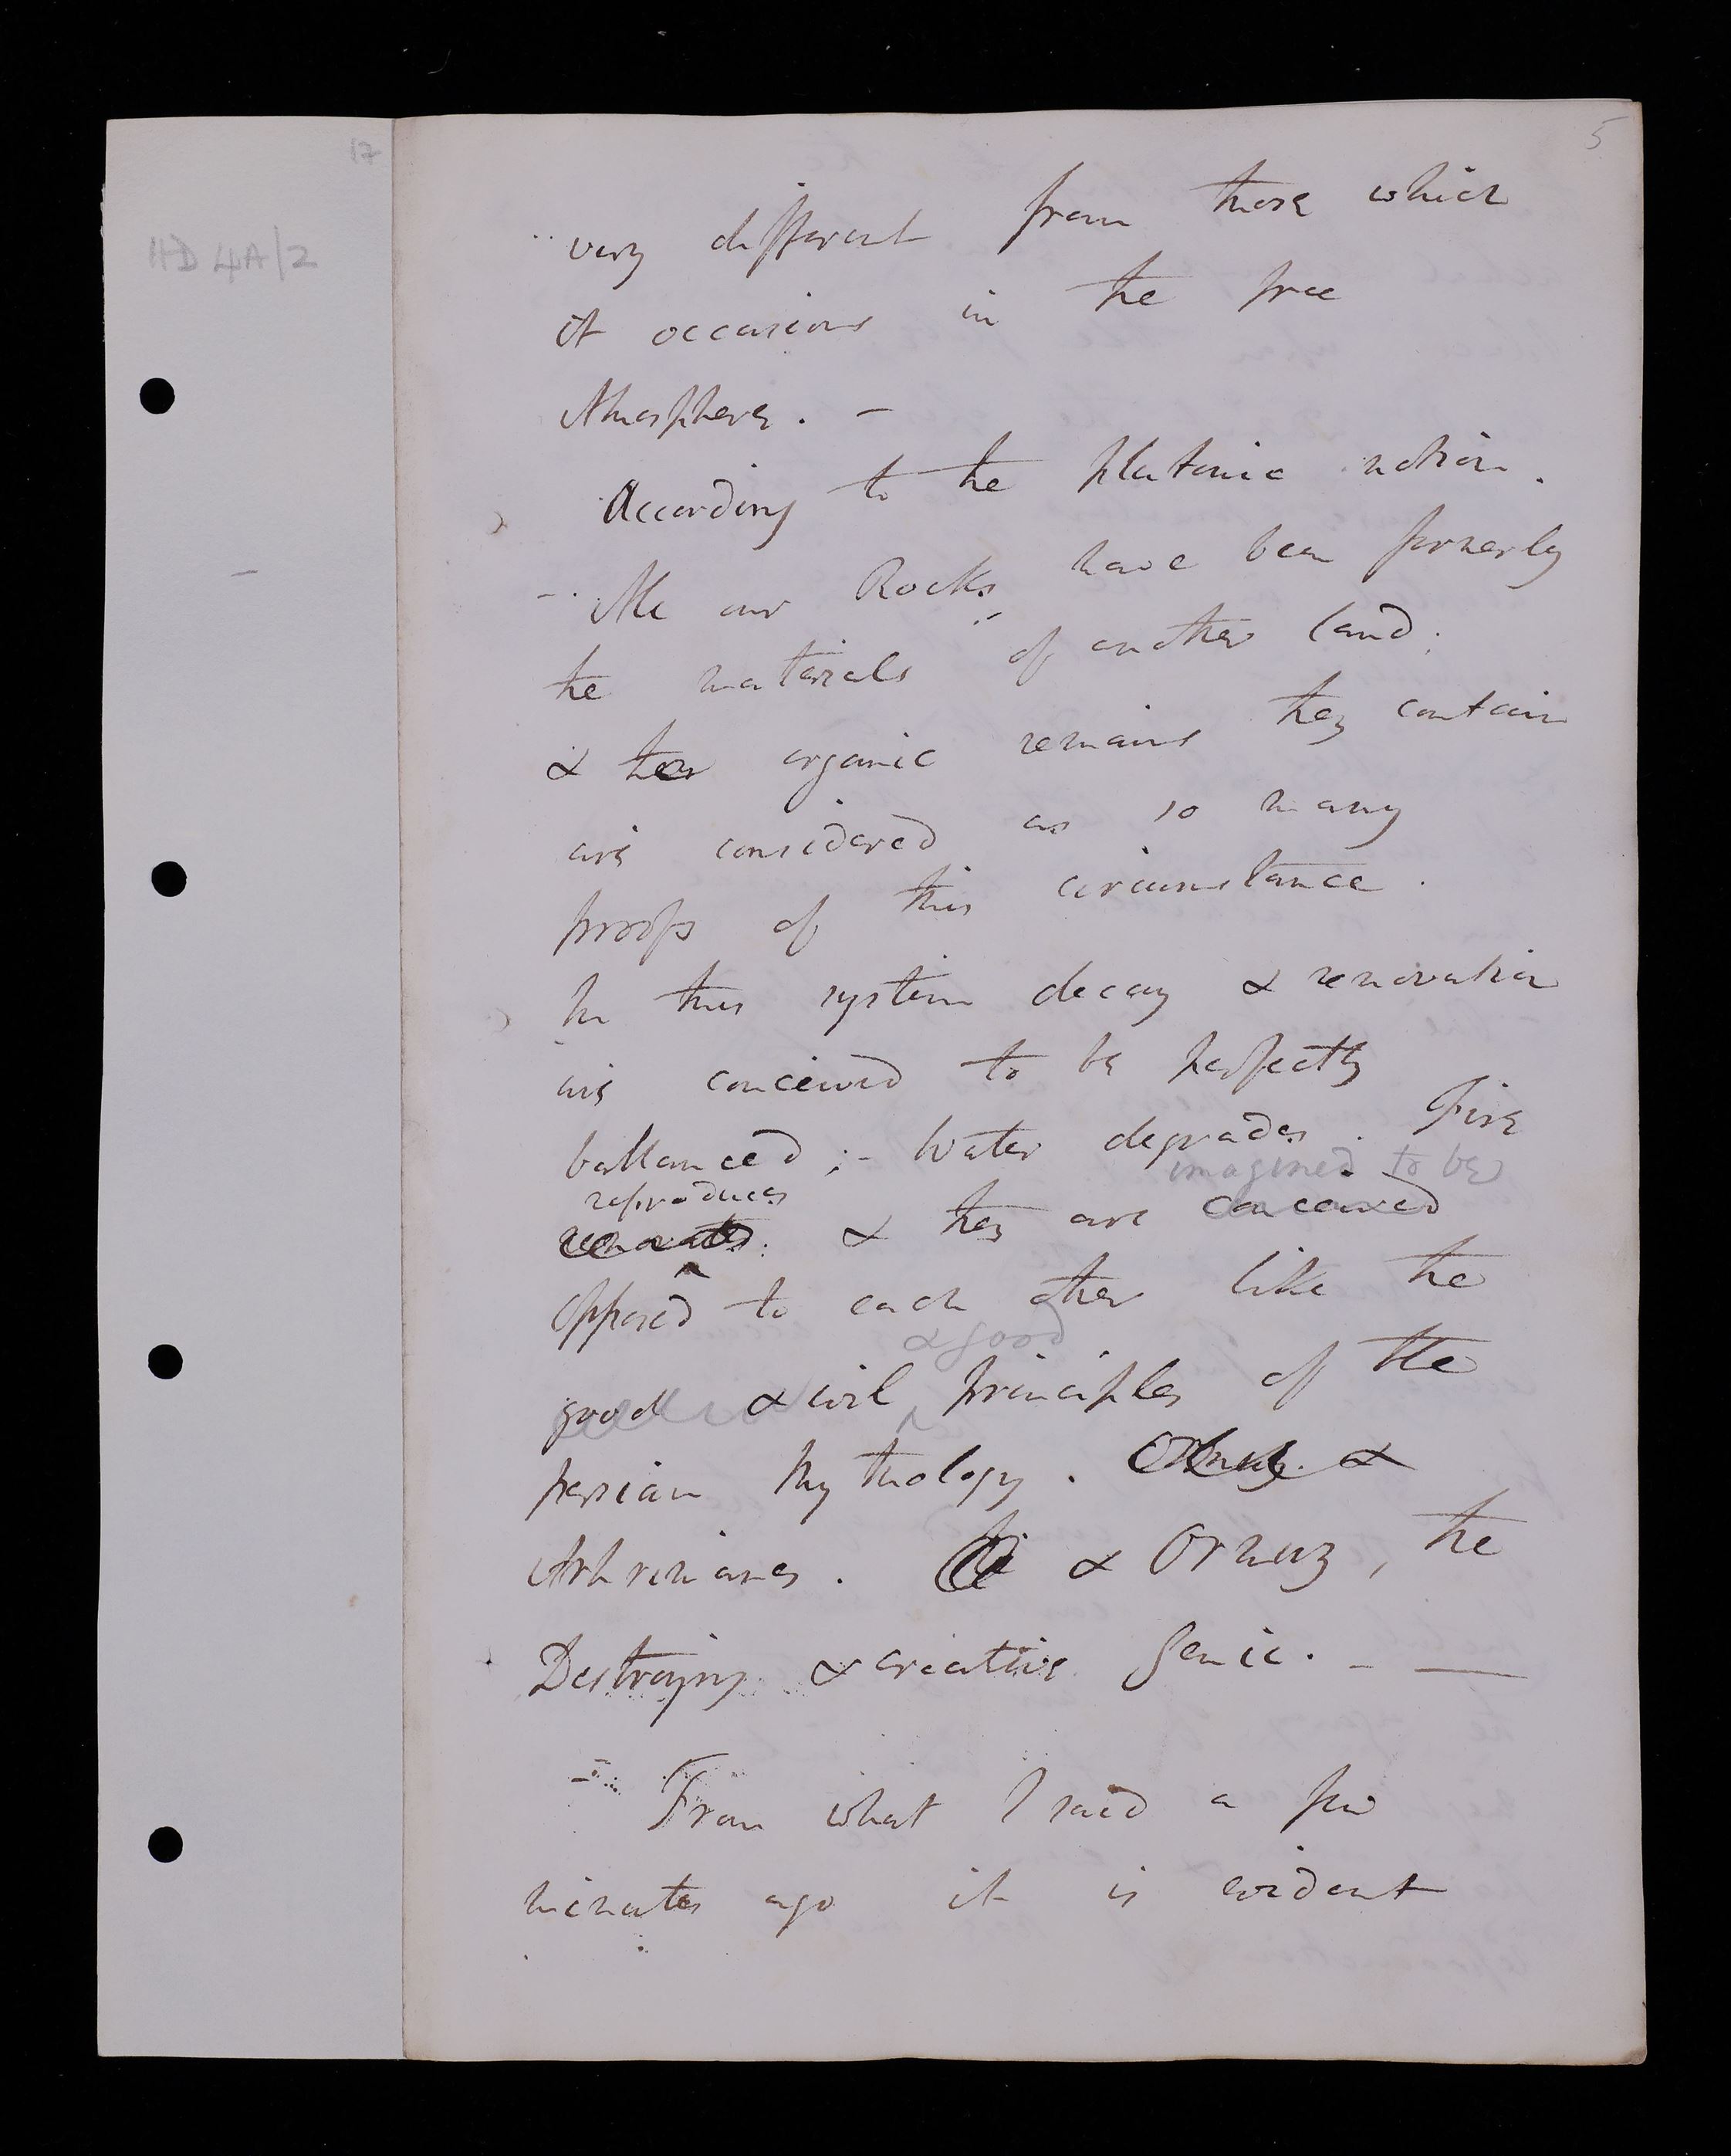 17
5
HD 4A/2
very different from those which
it occasions in the free
Atmosphere. -
According to the plutonic notion.
-. All our Rocks have been formerly
the materials of another land;
& the organic remains they contain
are considered as so many
proofs of this circumstance.
In this system decay & renovation
are conceived to be perfectly
ballanced ;- Water degrades. Fire
imagined to be
reproduces
renovates. & they are conceived
opposed to each other like the
& good
good & evil principles of the
persian Mythology. Ormuz &
Arhrimanes. & Ormuz, the
Destroying & creative Genii. - —
From what I said a few
minutes ago it is evident